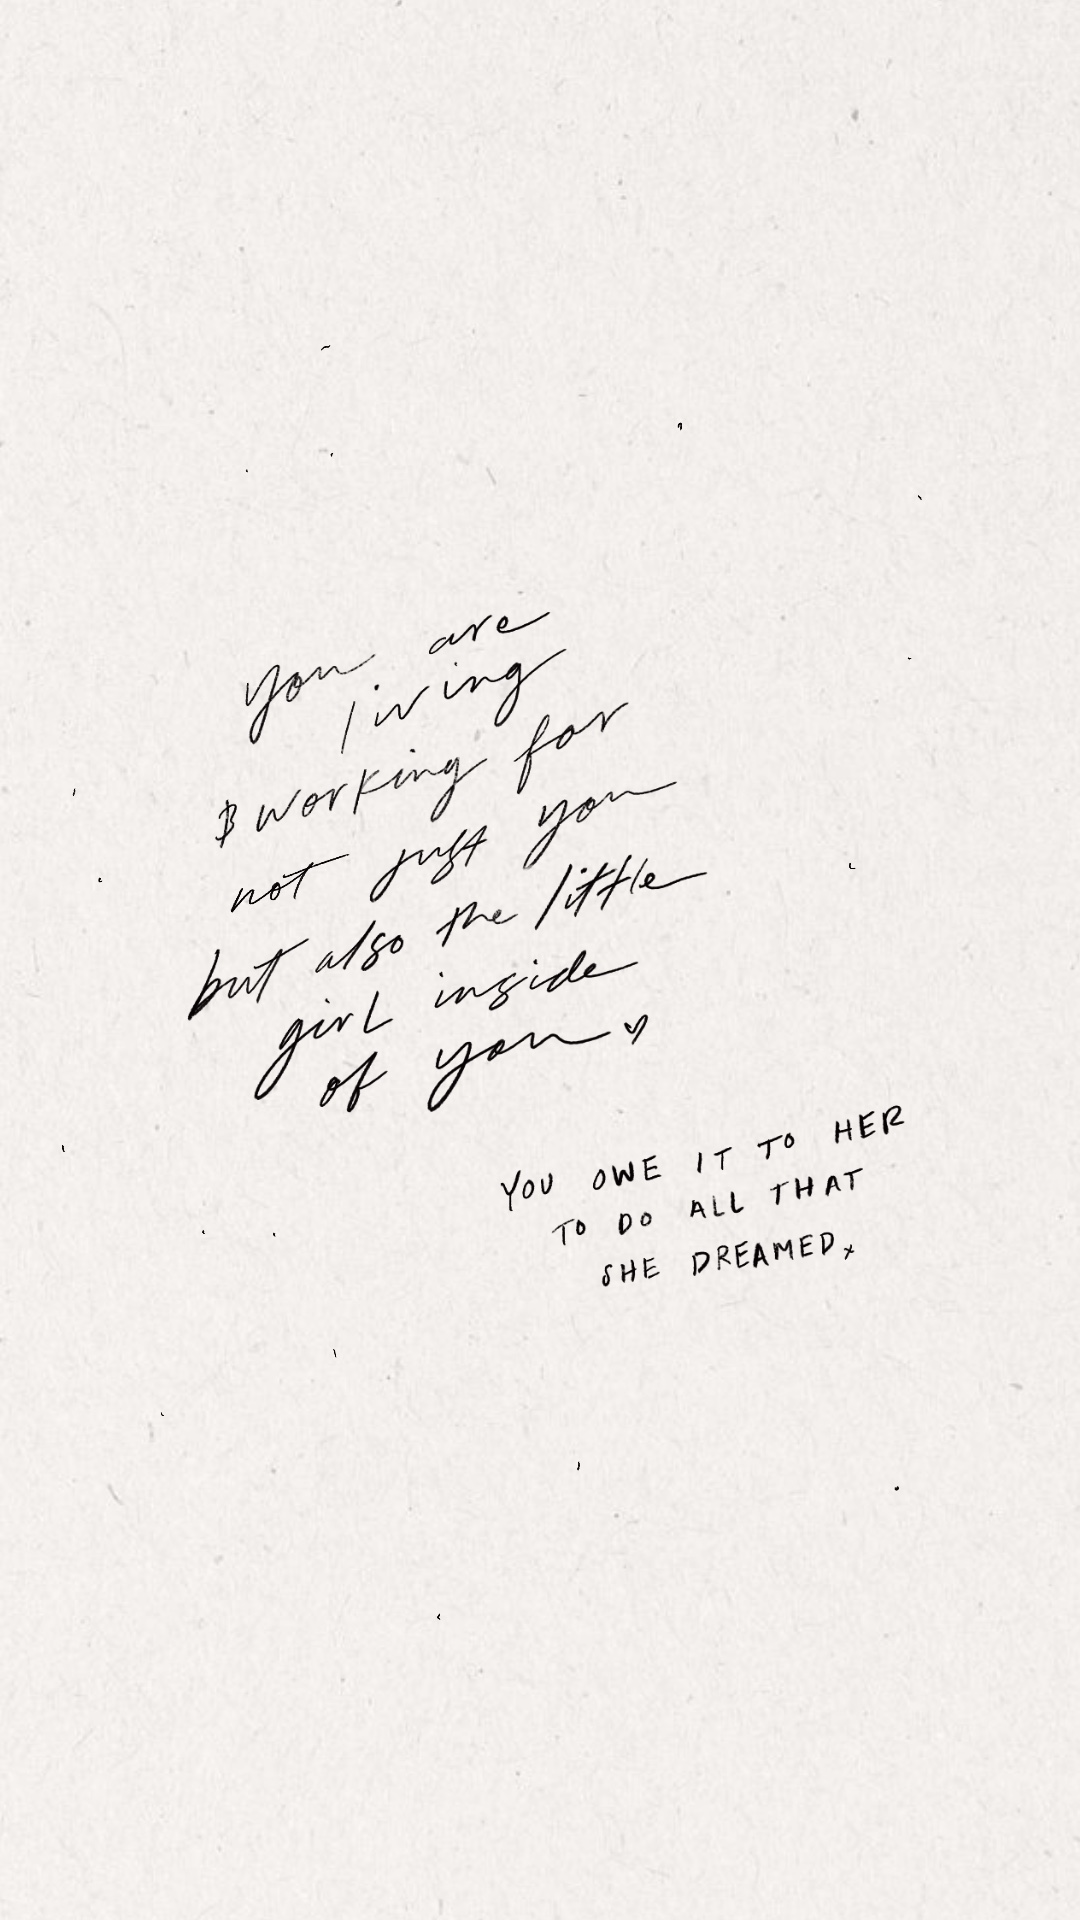 you are
living
& working for
not just you
but also the little
girl inside
of you ♡
YOU OWE IT TO HER
TO DO ALL THAT
SHE DREAMED. x